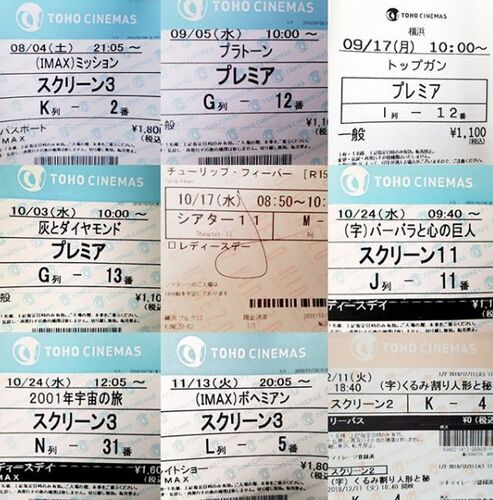 TOHO CINEMAS
08/04(土) 21:05~
(IMAX)ミッション
スクリーン3
K列 - 2番
パスポート
MAX
¥1,80
(税込
TOHO CINEMAS
09/05(水) 10:00~
プラトーン
プレミア
G列 - 12番
一般
¥1,1
TOHO CINEMAS
横浜
09/17(月) 10:00~
トップガン
プレミア
I列 - 12番
一般
¥1,100
(税込)
TOHO CINEMAS
10/03(水) 10:00~
灰とダイヤモンド
プレミア
G列 - 13番
般
¥1,1
チューリップ・フィーバー [R15
10/17(水) 08:50~10
シアター11
Theater 11
M-
ロ レディースデー
横浜ブルク13
現金決済
KINEZO-63
1/1
TOHO CINEMAS
10/24(水) 09:40~
(字)バーバラと心の巨人
スクリーン11
J列 - 11番
ディースデイ
¥1,1
TOHO CINEMAS
10/24(水) 12:05~
2001年宇宙の旅
スクリーン3
N列 - 31番
ディースデイ
MAX
¥1,60
(税
TOHO CINEMAS
11/13(火) 20:05~
(IMAX)ボヘミアン
スクリーン3
L列 - 5番
イトショー
MAX
¥1,8
(税
2/11(火)
18:40 (字)くるみ割り人形と秘
スクリーン2 K - 4
リーパス
¥0(税込)
マイレージ交換済
スクリーン2
(字)くるみ割り人形と秘
2018/12/11(火) 18:40 開映